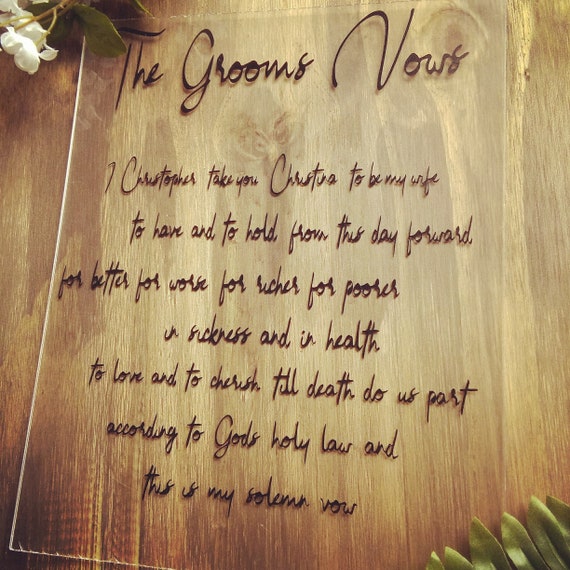 The Grooms Vows
I Christopher take you Christina to be my wife
to have and to hold from this day forward
for better for worse for richer for poorer
in sickness and in health
to love and to cherish till death do us part
according to Gods holy law and
this is my solemn vow